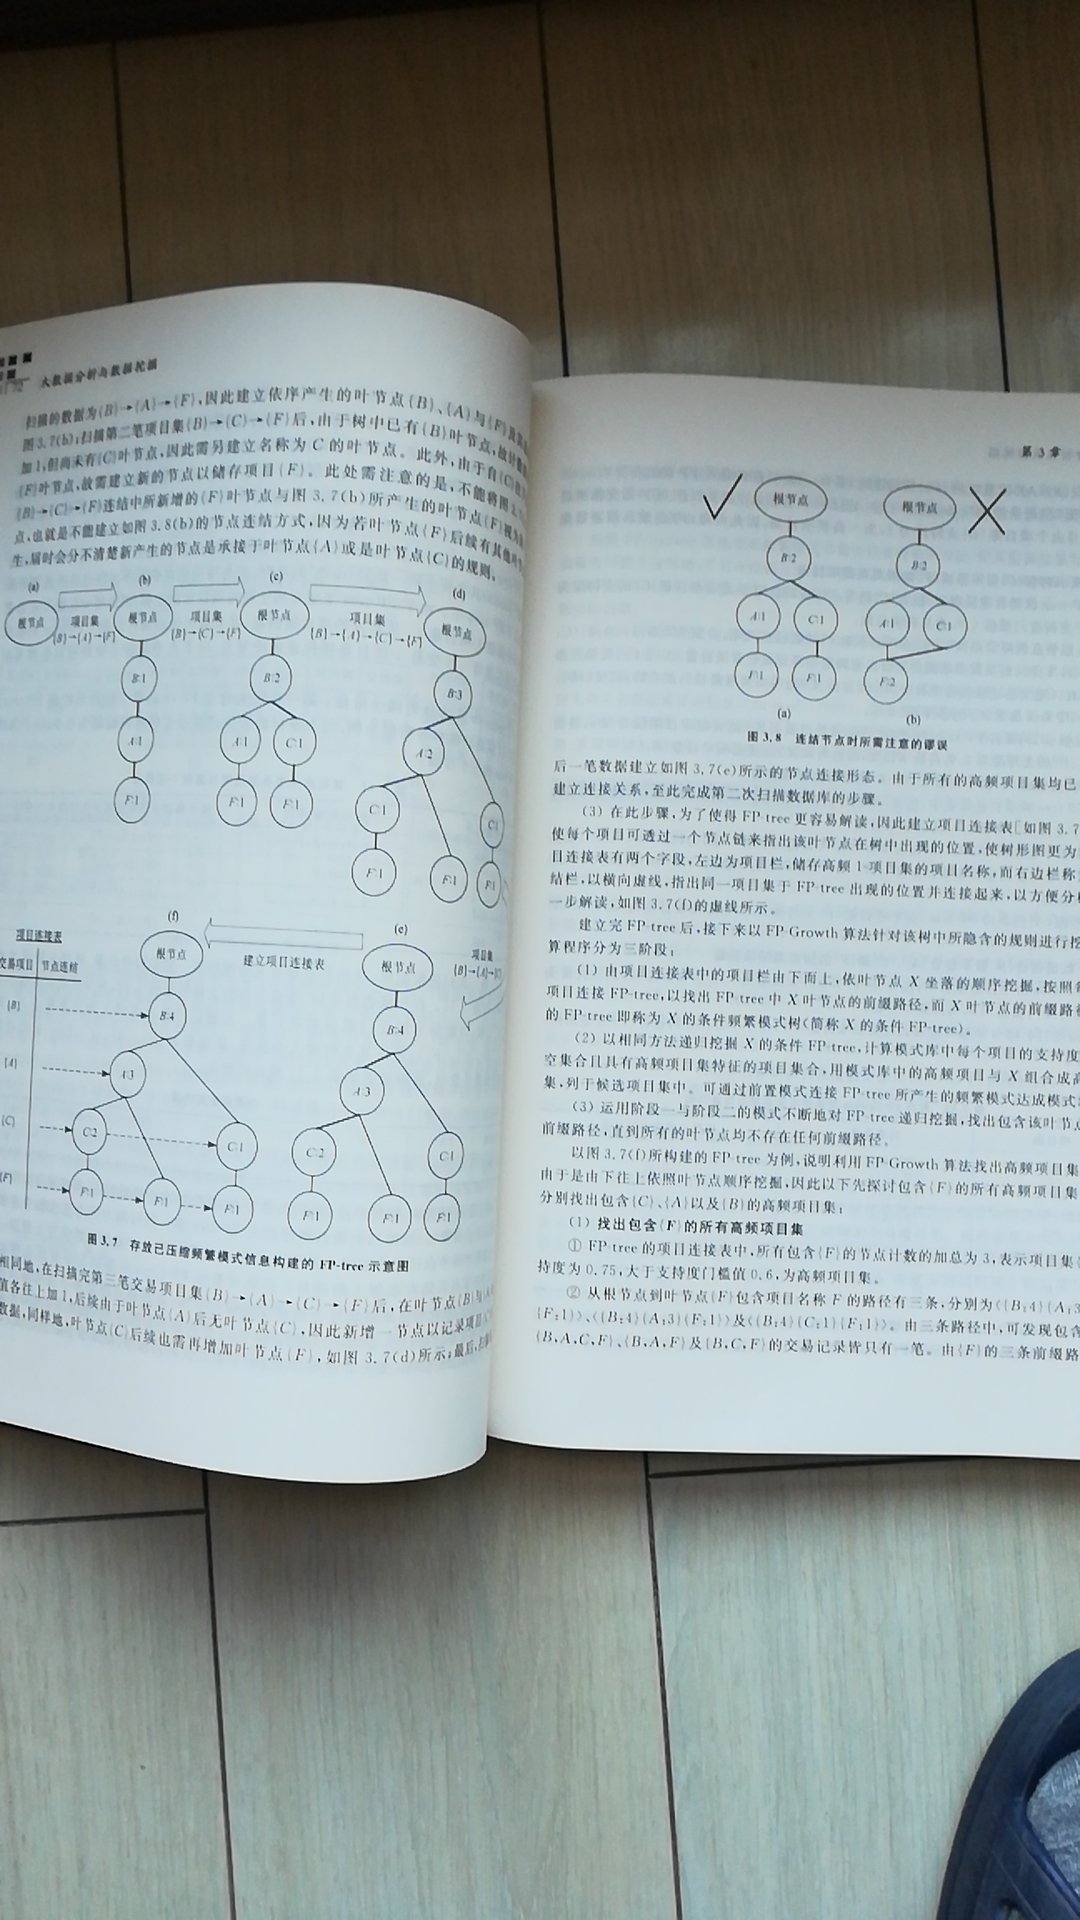 大数据分析与数据挖掘
扫描的数据为{B}→{A}→{F},因此建立依序产生的叶节点{B}、{A}与{F}
图3.7(b);扫描第二笔项目集{B}→{C}→{F}后,由于树中已有{B}叶节点,故计数
加1,但尚未有{C}叶节点,因此需另建立名称为 C 的叶节点。此外,由于自{C}
{F}叶节点,故需建立新的节点以储存项目{F}。此处需注意的是,不能将图
{B}→{C}→{F}连结中所新增的{F}叶节点与图 3.7(b)所产生的叶节点{F}视为
点,也就是不能建立如图3.8(b)的节点连结方式,因为若叶节点{F}后续有其他
生,届时会分不清楚新产生的节点是承接于叶节点{A}或是叶节点{C}的规则。
(a)
根节点
项目集
{B}→{A}→{F}
(b)
根节点
B:1
A:1
F:1
项目集
{B}→{C}→{F}
(c)
根节点
B:2
A:1 C:1
F:1 F:1
项目集
{B}→{A}→{C}→{F}
(d)
根节点
B:3
A:2
C:1 C:1
F:1 F:1 F:1
项目集
(e)
根节点
B:4
A:3
C:2 C:1
F:1 F:1 F:1
建立项目连接表
(f)
根节点
B:4
A:3
C:2 C:1
F:1 F:1 F:1
项目连接表
交易项目 节点连结
{B}
{A}
{C}
{F}
图3.7 存放已压缩频繁模式信息构建的 FP-tree 示意图
相同地,在扫描完第三笔交易项目集{B}→{A}→{C}→{F}后,在叶节点{B}与
值各往上加1,后续由于叶节点{A}后无叶节点{C},因此新增一节点以记录项目
数据,同样地,叶节点{C}后续也需再增加叶节点{F},如图 3.7(d)所示;最后,
第 3 章
根节点
B:2
A:1 C:1
F:1 F:1
(a)
根节点
B:2
A:1 C:1
F:2
(b)
图 3.8 连结节点时所需注意的谬误
后一笔数据建立如图 3.7(e)所示的节点连接形态。由于所有的高频项目集均已
建立连接关系,至此完成第二次扫描数据库的步骤。
(3) 在此步骤,为了使得 FP-tree 更容易解读,因此建立项目连接表[如图 3.7
使每个项目可透过一个节点链来指出该叶节点在树中出现的位置,使树形图更为
目连接表有两个字段,左边为项目栏,储存高频 1-项目集的项目名称,而右边栏称
结栏,以横向虚线,指出同一项目集于 FP-tree 出现的位置并连接起来,以方便分析
一步解读,如图 3.7(f)的虚线所示。
建立完 FP-tree 后,接下来以 FP-Growth 算法针对该树中所隐含的规则进行挖
算程序分为三阶段:
(1) 由项目连接表中的项目栏由下而上,依叶节点 X 坐落的顺序挖掘,按照
项目连接 FP-tree,以找出 FP-tree 中 X 叶节点的前缀路径,而 X 叶节点的前缀路径
的 FP-tree 即称为 X 的条件频繁模式树(简称 X 的条件 FP-tree)。
(2) 以相同方法递归挖掘 X 的条件 FP-tree,计算模式库中每个项目的支持度
空集合且具有高频项目集特征的项目集合,用模式库中的高频项目与 X 组合成高
集,列于候选项目集中。可通过前置模式连接 FP-tree 所产生的频繁模式达成模式
(3) 运用阶段一与阶段二的模式不断地对 FP-tree 递归挖掘,找出包含该叶节点
前缀路径,直到所有的叶节点均不存在任何前缀路径。
以图 3.7(f)所构建的 FP-tree 为例,说明利用 FP-Growth 算法找出高频项目集
由于是由下往上依照叶节点顺序挖掘,因此以下先探讨包含{F}的所有高频项目集
分别找出包含{C}、{A}以及{B}的高频项目集:
(1) 找出包含{F}的所有高频项目集
① FP-tree 的项目连接表中,所有包含{F}的节点计数的加总为 3,表示项目集
持度为 0.75,大于支持度门槛值 0.6,为高频项目集。
② 从根节点到叶节点{F}包含项目名称 F 的路径有三条,分别为〈{B:4}{A:3
{F:1}〉、〈{B:4}{A:3}{F:1}〉及〈{B:4}{C:1}{F:1}〉。由三条路径中,可发现包含
{B,A,C,F}、{B,A,F}及{B,C,F}的交易记录皆只有一笔。由{F}的三条前缀路